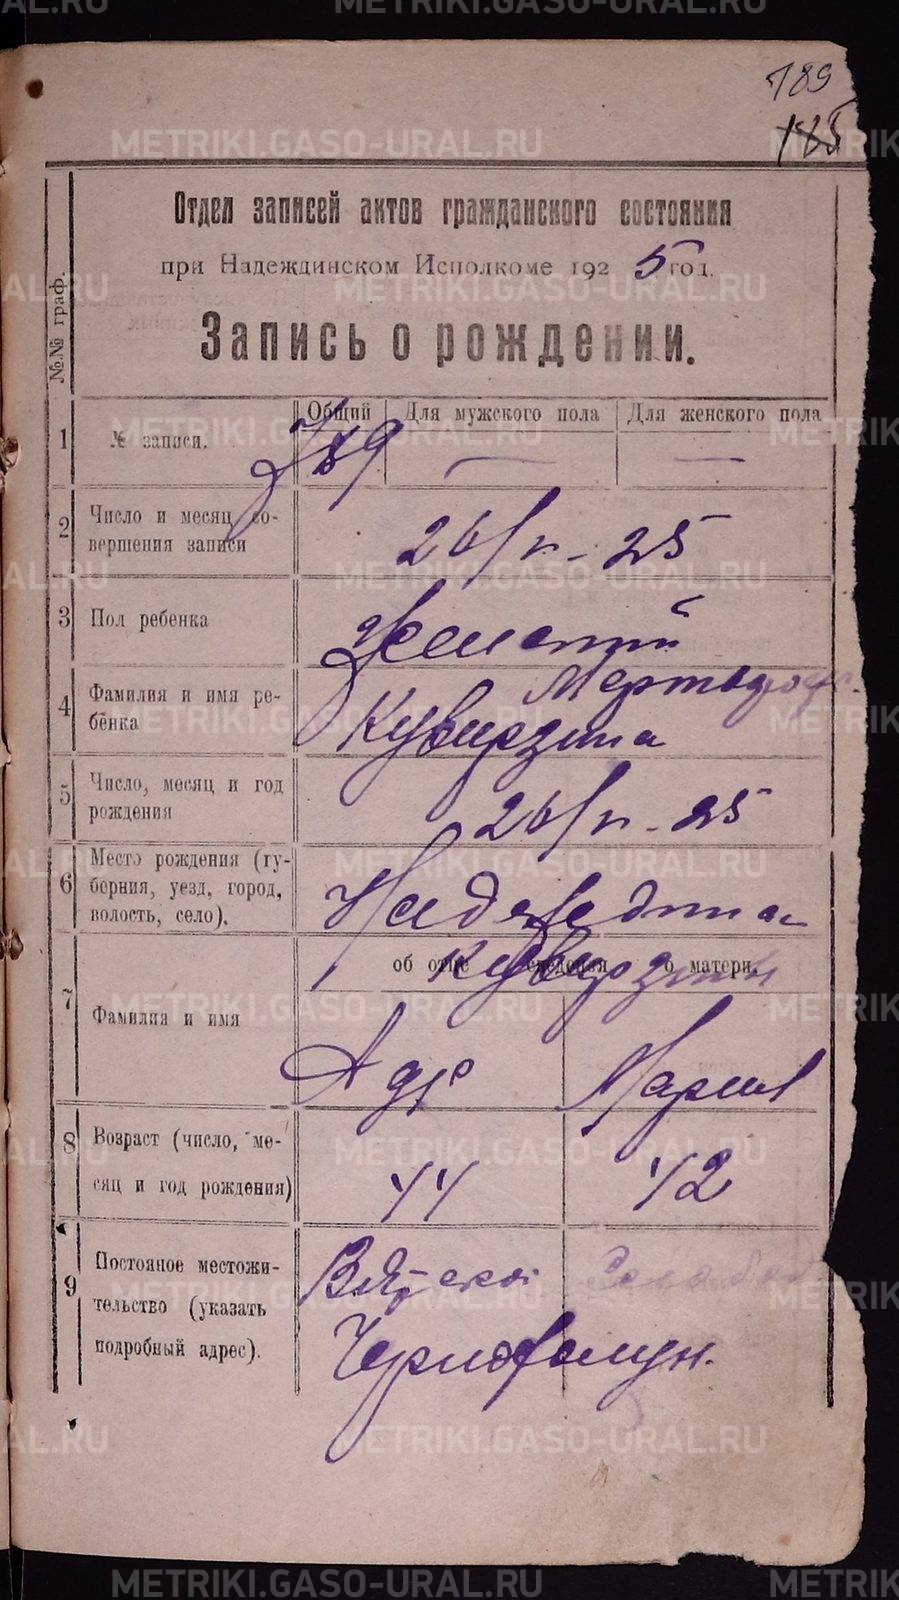 189
185
Отдел записей актов гражданского состояния
при Надеждинском Исполкоме 1925 год.
Запись о рождении.
№№ граф.
Общий Для мужского пола Для женского пола
1 № записи. 789 — —
2 Число и месяц со-
вершения записи
26/ - 25
3 Пол ребенка
Женский
4 Фамилия и имя ре-
бёнка
Мертворож.
Кувирзина
5 Число, месяц и год
рождения
26/ - 25
6 Место рождения (гу-
берния, уезд, город,
волость, село).
Надеждина
об отце о матери.
7 Фамилия и имя
Мария
8 Возраст (число, ме-
сяц и год рождения)
44 42
9 Постояное местожи-
тельство (указать
подробный адрес).
Вятской
METRIKI.GASO-URAL.RU